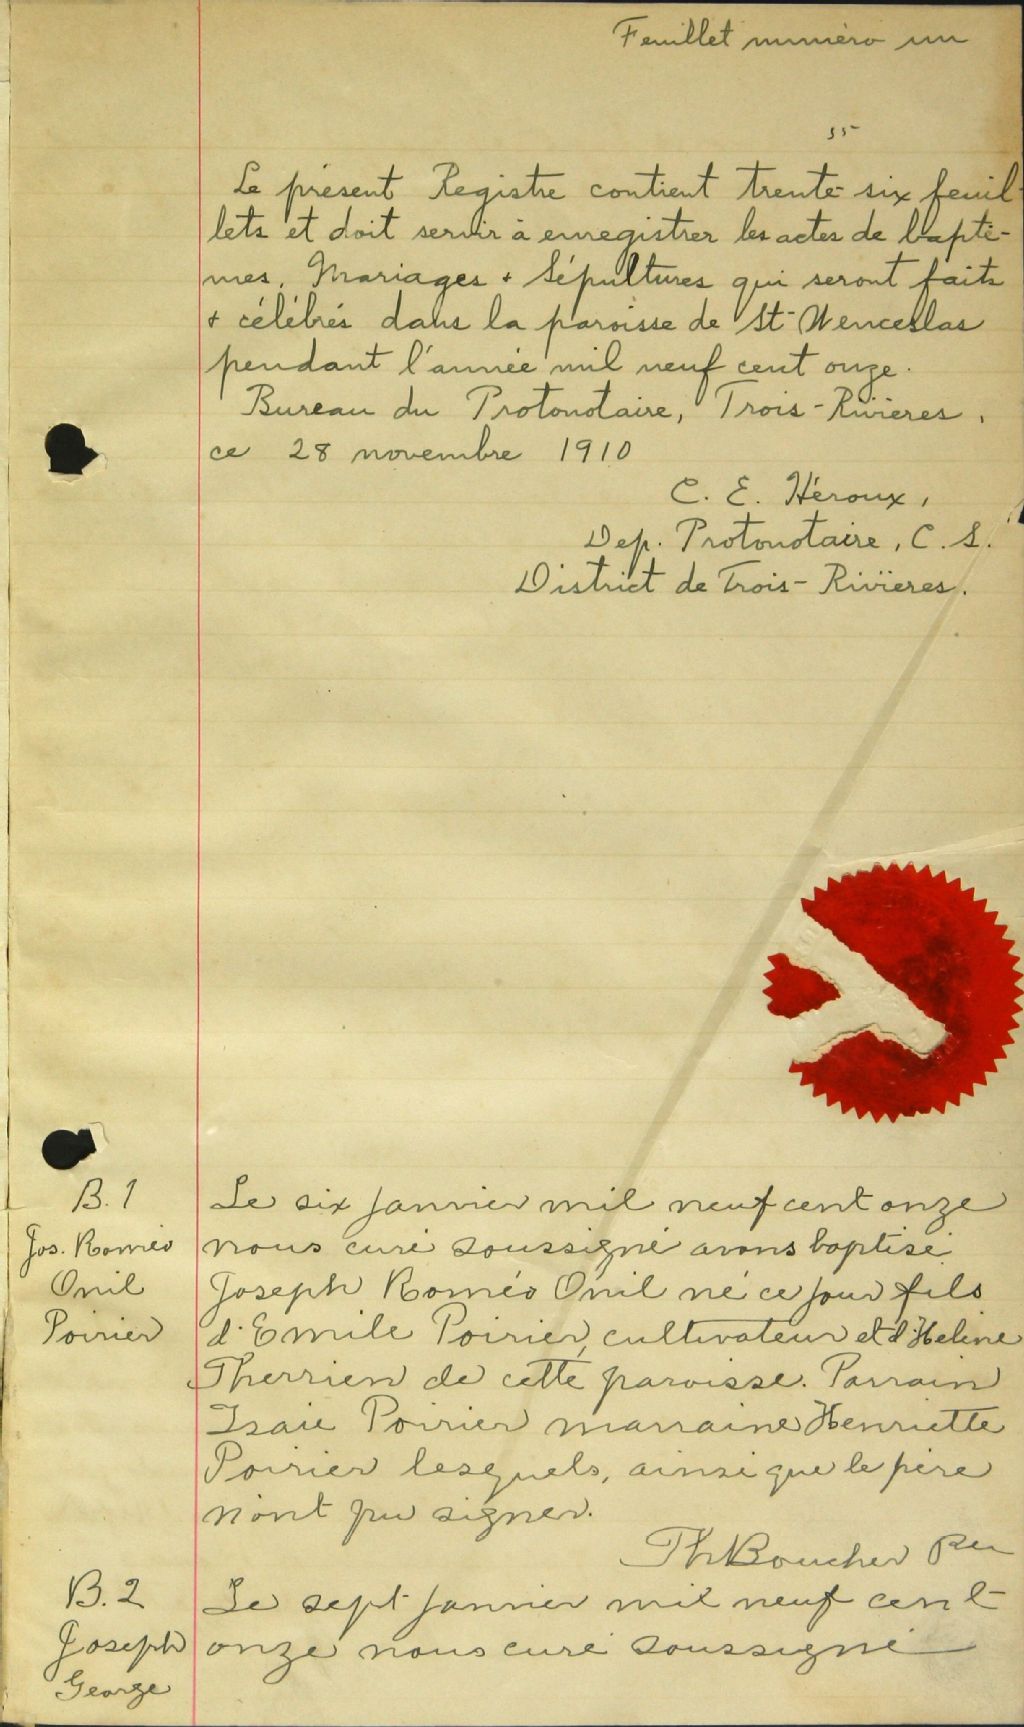 Feuillet numéro un
55
Le présent Registre contient trente-six feuil-
lets et doit servir à enregistrer les actes de baptê-
mes, Mariages + Sépultures qui seront faits
+ célébrés dans la paroisse de St-Wenceslas
pendant l'année mil neuf cent onze.
Bureau du Protonotaire, Trois-Rivières,
ce 28 novembre 1910
C. E. Héroux,
Dep. Protonotaire, C. S.
District de Trois-Rivières.
B. 1
Jos. Roméo
Onil
Poirier
Le six janvier mil neuf cent onze
nous curé soussigné avons baptisé
Joseph Roméo Onil né ce jour fils
d'Emile Poirier, cultivateur et d'Helène
Therrien de cette paroisse. Parrain
Isaie Poirier marraine Henriette
Poirier lesquels, ainsi que le père
n'ont pu signer.
Th Boucher Ptr
B. 2
Joseph
George
Le sept janvier mil neuf cent
onze nous curé soussigné